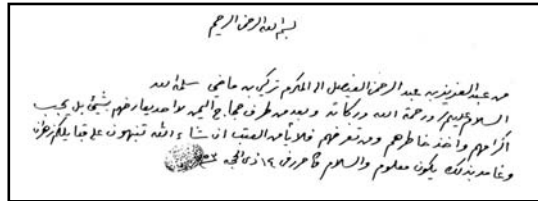 بسم الله الرحمن الرحيم
من عبد العزيز بن عبد الرحمن الفيصل الى المكرم تركي بن ماضي سلمه الله
السلام عليكم ورحمة الله وبركاته وبعد من طرف حجاج اليمن لا احد يعارضهم بشئ بل يجب
اكرامهم واخذ خاطرهم ومن تعرضهم فلا يأمن العقب ان شاء الله تنبهون على قبايلكم
وغامد بذلك يكون معلوم والسلام حرر في ١٤ ذي الحجة